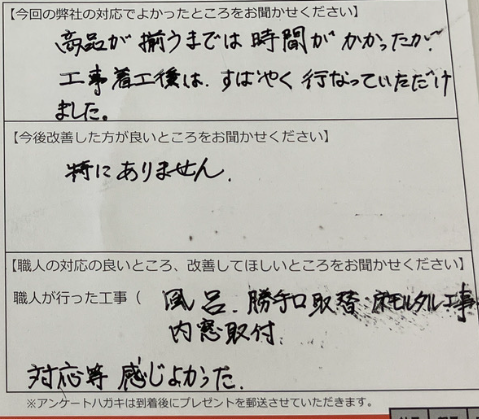 【今回の弊社の対応でよかったところをお聞かせください】
商品が揃うまでは時間がかかったが、
工事着工後は、すばやく行なっていただけ
ました。
【今後改善した方が良いところをお聞かせください】
特にありません.
【職人の対応の良いところ、改善してほしいところをお聞かせください】
職人が行った工事（ 風呂、勝手口取替、床モルタル工事
内窓取付.
対応等 感じよかった.
※アンケートハガキは到着後にプレゼントを郵送させていただきます。